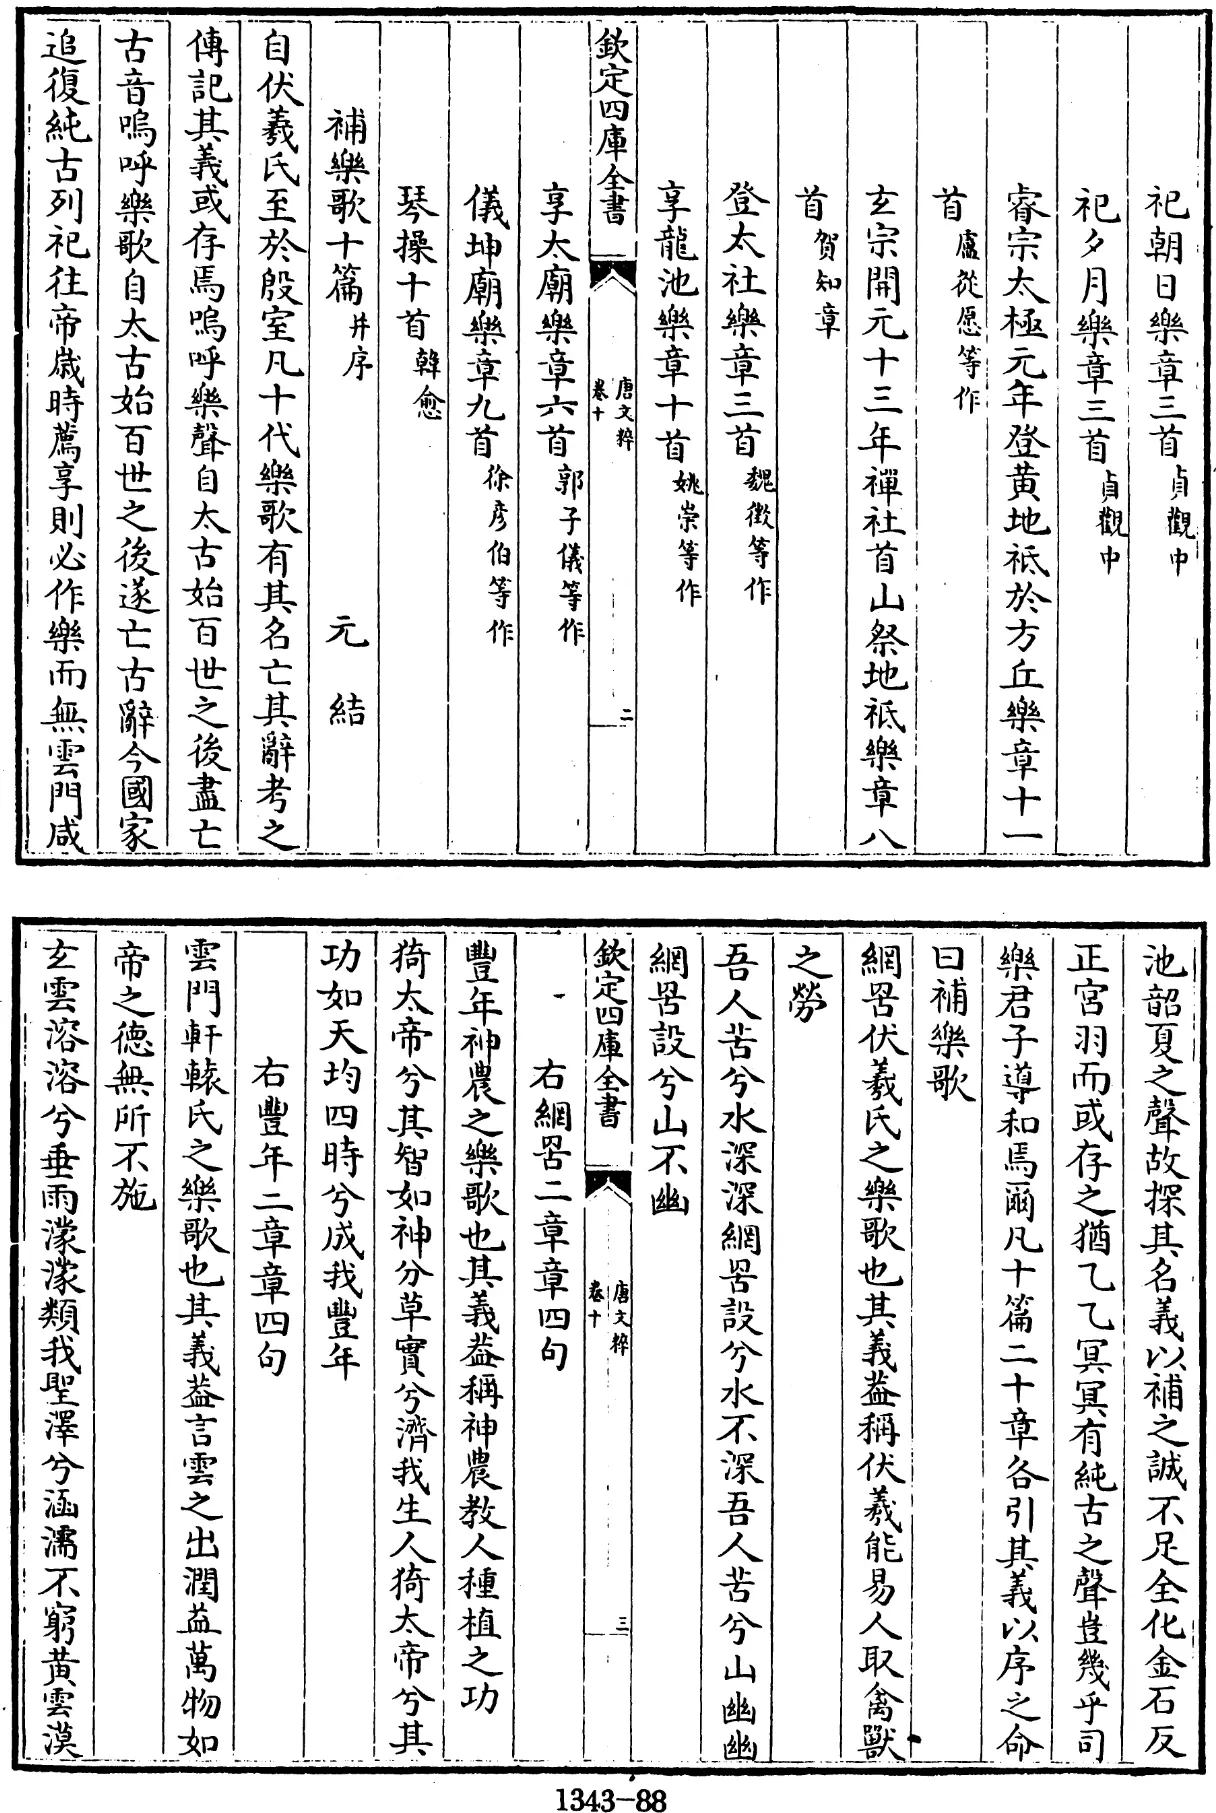 祀朝日樂章三首貞觀中
祀夕月樂章三首貞觀中
睿宗太極元年登黄地祗於方丘樂章十一
首盧從愿等作
玄宗開元十三年禪社首山祭地祗樂章八
首賀知章
登太社樂章三首魏徵等作
享龍池樂章十首姚崇等作
欽定四庫全書
唐文粹
卷十
二
享太廟樂章六首郭子儀等作
儀坤廟樂章九首徐彦伯等作
琴操十首韓愈
補樂歌十篇并序 元結
自伏羲氏至於殷室凡十代樂歌有其名亡其辭考之
傳記其義或存焉嗚呼樂聲自太古始百世之後盡亡
古音嗚呼樂歌自太古始百世之後遂亡古辭今國家
追復純古列祀往帝歲時薦享則必作樂而無雲門咸
池韶夏之聲故探其名義以補之誠不足全化金石反
正宮羽而或存之猶乙乙冥冥有純古之聲豈幾乎司
樂君子導和焉爾凡十篇二十章各引其義以序之命
曰補樂歌
網罟伏羲氏之樂歌也其義葢稱伏羲能易人取禽獸
之勞
吾人苦兮水深深網罟設兮水不深吾人苦兮山幽幽
網罟設兮山不幽
欽定四庫全書
唐文粹
卷十
三
右網罟二章章四句
豐年神農之樂歌也其義葢稱神農教人種植之功
猗太帝兮其智如神分草實兮濟我生人猗太帝兮其
功如天均四時兮成我豐年
右豐年二章章四句
雲門軒轅氏之樂歌也其義葢言雲之出潤益萬物如
帝之德無所不施
玄雲溶溶兮垂雨濛濛類我聖澤兮涵濡不窮黄雲漠
1343-88